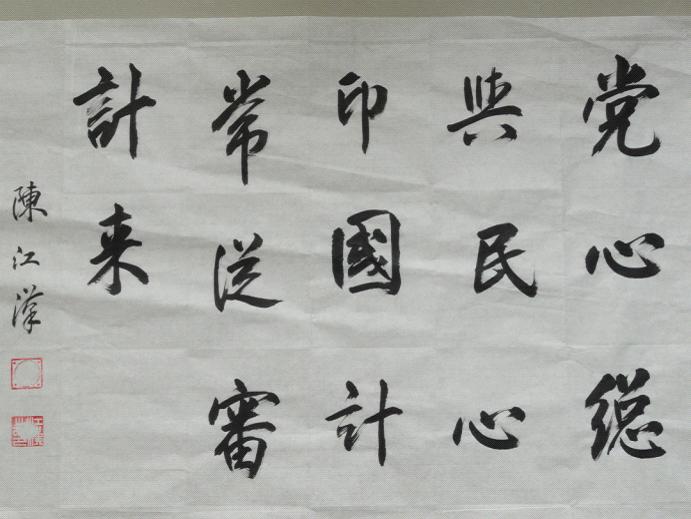 党心總
與民心
印國計
常從審
計来
陳江漢